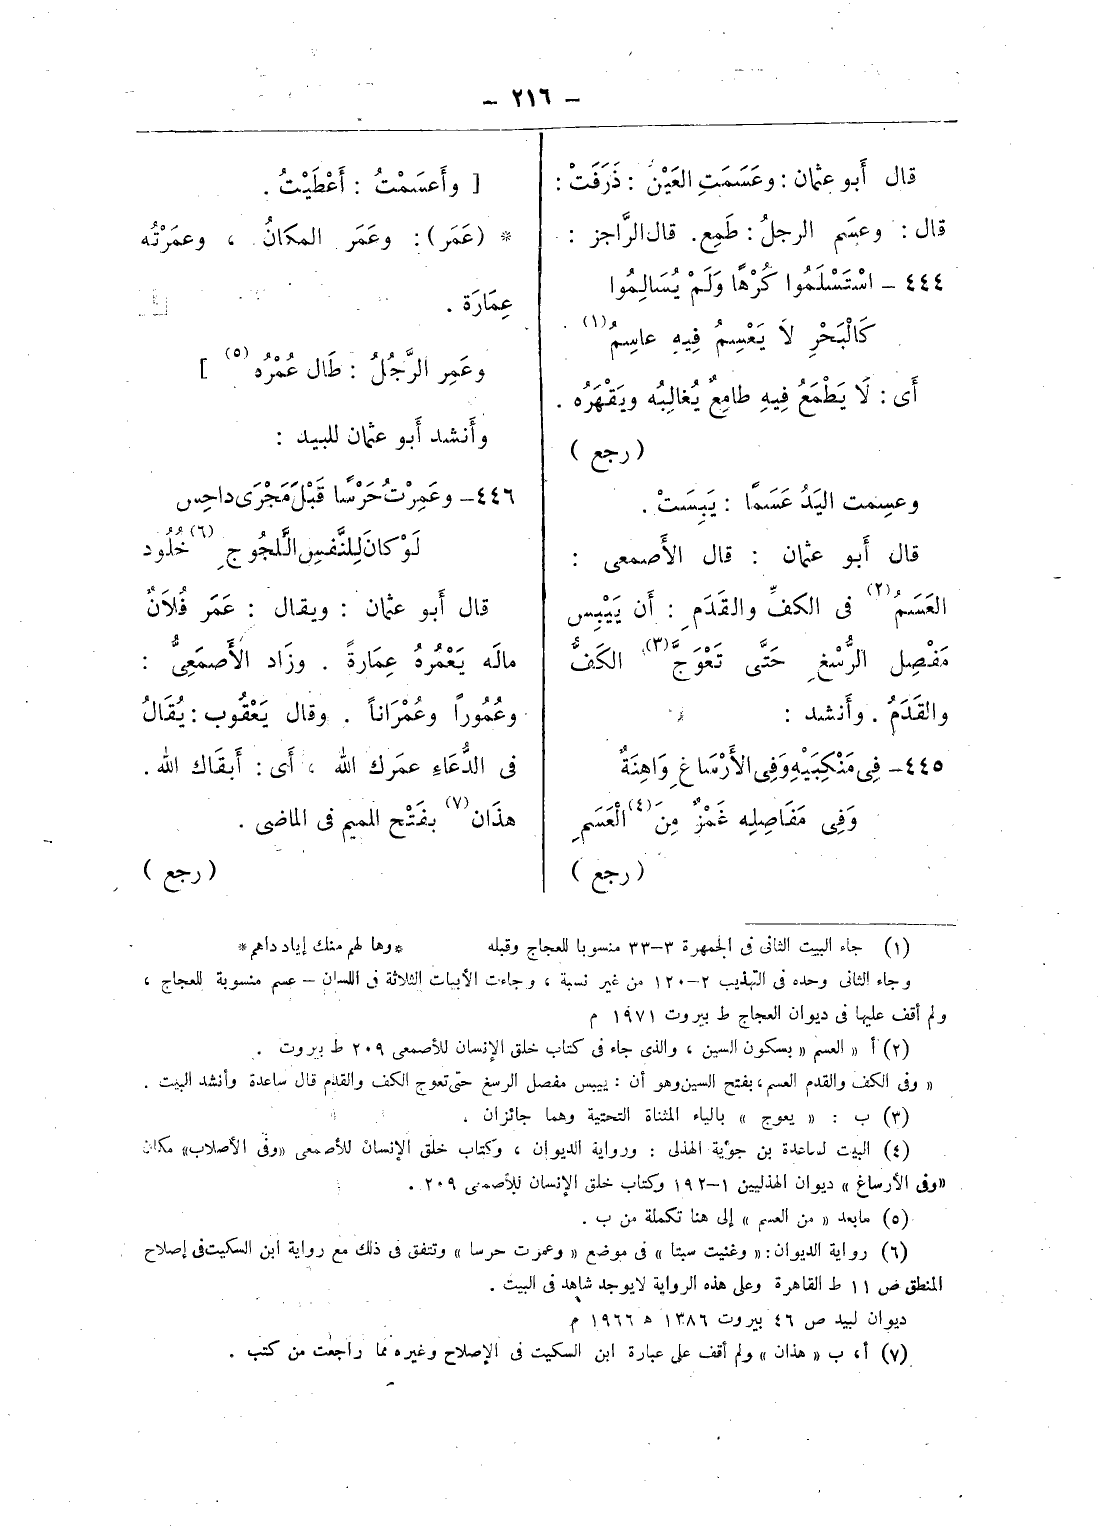 – ٢١٦ –
قال أَبو عثمان : وعَسَمَتِ العَيْنُ : ذَرَفَتْ :
قال : وعسَم الرجلُ : طَمِع. قال الرَّاجز :
٤٤٤ – اسْتَسْلَمُوا كُرْهًا وَلَمْ يُسَالِمُوا
كَالْبَحْرِ لاَ يَعْسِمُ فِيهِ عاسِمُ (١)
أَى : لَا يَطْمَعُ فِيهِ طامِعٌ يُغالِبُه ويَقْهَرُه .
( رجع )
وعسِمت اليَدُ عَسَمًا : يَبِسَتْ .
قال أَبو عثمان : قال الأَصمعى :
العَسَمُ (٢) فى الكفِّ والقَدَمِ : أَن يَيْبِس
مَفْصِل الرُّسْغِ حَتَّى تَعْوَجَّ (٣) الكَفُّ
والقَدَمُ . وأَنشد :
٤٤٥ – فِى مَنْكِبَيْهِ وَفِى الأَرْسَاغِ وَاهِنَةٌ
وَفِى مَفَاصِلِه غَمْزٌ مِنَ (٤) الْعَسَمِ
( رجع )
[ وأَعسَمْتُ : أَعْطَيْتُ .
* (عَمَر) : وعَمَر المكانُ ، وعمَرْتُه
عِمَارَة .
وعَمِر الرَّجُلُ : طَال عُمْرُه (٥) ]
وأَنشد أَبو عثمان للبيد :
٤٤٦– وعَمِرْتُ حَرْسًا قَبْلَ مَجْرَى داحِس
لَوْ كانَ لِلنَّفسِ اللَّجُوجِ (٦) خُلُود
قال أَبو عثمان : ويقال : عَمَر فُلاَنٌ
مالَه يَعْمُرهُ عِمَارةً . وزَاد الأَصمَعِىُّ :
وعُمُوراً وعُمْرَاناً . وقال يَعْقُوب : يُقَالُ
فى الدُّعَاءِ عمَرك الله ، أَى : أَبقَاك الله .
هذَان (٧) بفَتْح الميم فى الماضى .
( رجع )
(١) جاء البيت الثانى فى الجمهرة ٣–٣٣ منسوبا للعجاج وقبله * وها لهم منك إياد داهم *
وجاء الثانى وحده فى التهذيب ٢–١٢٠ من غير نسبة ، وجاءت الأبيات الثلاثة فى اللسان – عسم منسوبة للعجاج ،
ولم أقف عليها فى ديوان العجاج ط بيروت ١٩٧١ م
(٢) أ « العسم » بسكون السين ، والذى جاء فى كتاب خلق الإنسان للأصمعى ٢٠٩ ط بيروت .
« وفى الكف والقدم العسم ، بفتح السين وهو أن : ييبس مفصل الرسغ حتى تعوج الكف والقدم قال ساعدة وأنشد البيت .
(٣) ب : « يعوج » بالياء المثناة التحتية وهما جائزان .
(٤) البيت لساعدة بن جوية الهذلى : ورواية الديوان ، وكتاب خلق الإنسان للأصمعى «وفى الأصلاب» مكان
«وفى الأرساغ » ديوان الهذليين ١–١٩٢ وكتاب خلق الإنسان للأصمعى ٢٠٩ .
(٥) مابعد « من العسم » إلى هنا تكملة من ب .
(٦) رواية الديوان : « وغنيت سبتا » فى موضع « وعمرت حرسا » وتتفق فى ذلك مع رواية ابن السكيت فى إصلاح
المنطق ص ١١ ط القاهرة وعلى هذه الرواية لايوجد شاهد فى البيت .
ديوان لبيد ص ٤٦ بيروت ١٣٨٦ ه ١٩٦٦ م
(٧) أ، ب « هذان » ولم أقف على عبارة ابن السكيت فى الإصلاح وغيره مما راجعت من كتب .